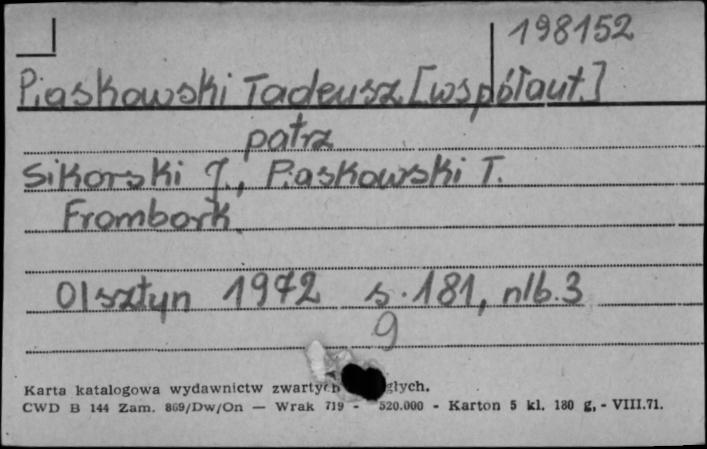 198152
Piaskowski Tadeusz [współaut.]
patrz
Sikorski J., Piaskowski T.
Frombork
Olsztyn 1972 s. 181, nlb. 3
9
Karta katalogowa wydawnictw zwartych głych.
CWD B 144 Zam. 869/Dw/On — Wrak 719 - 520.000 - Karton 5 kl. 180 g, - VIII.71.